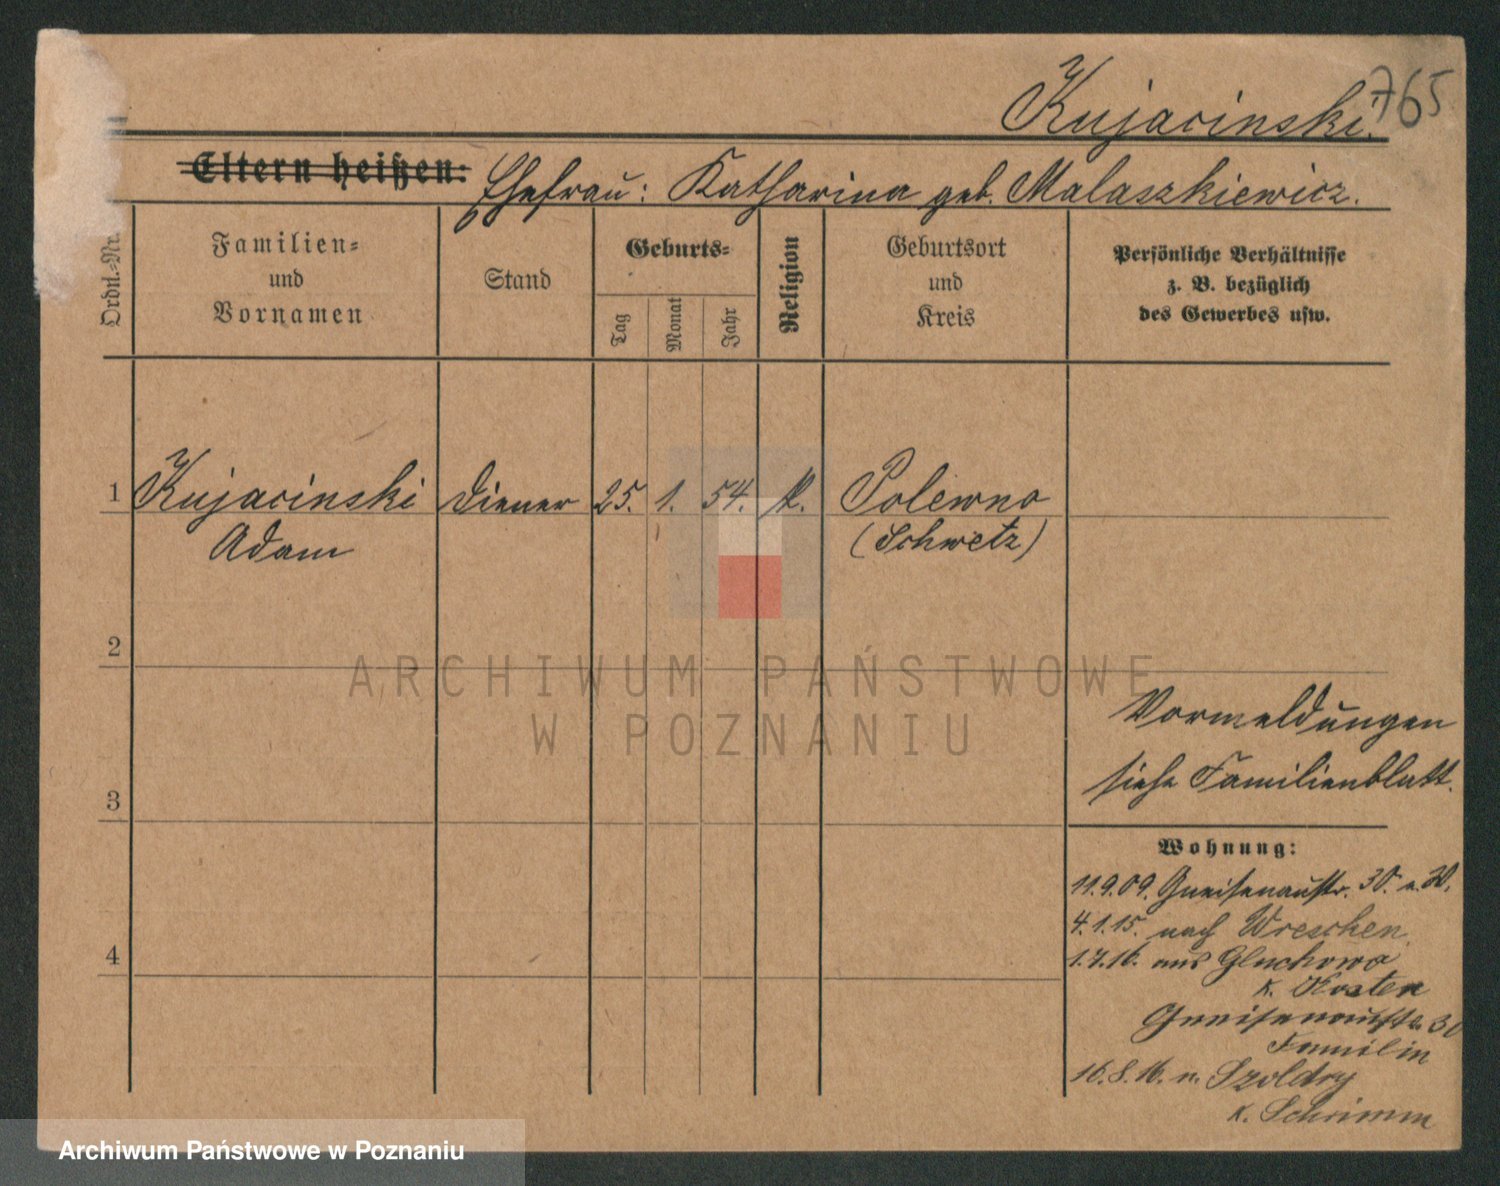 Kujacinski.
765
Eltern heißen: Ehefrau: Katharina geb. Malaszkiewicz.
Ordn.=Nr.
Familien=
und
Vornamen
Stand
Geburts=
Tag
Monat
Jahr
Religion
Geburtsort
und
Kreis
Persönliche Verhältnisse
z. B. bezüglich
des Gewerbes usw.
1 Kujacinski Diener 25. 1. 54. k. Polewno
Adam (Schwetz)
2
ARCHIWUM PAŃSTWOWE
W POZNANIU
Vormeldungen
siehe Familienblatt.
3
Wohnung:
11.9.09. Gneisenaustr. 30.
4.1.15. nach Wreschen
4
1.7.16. aus Gluchowo
K. Kosten
Gneisenaustr. 30
Familie
16.8.16. n. Szoldry
K. Schrimm
Archiwum Państwowe w Poznaniu